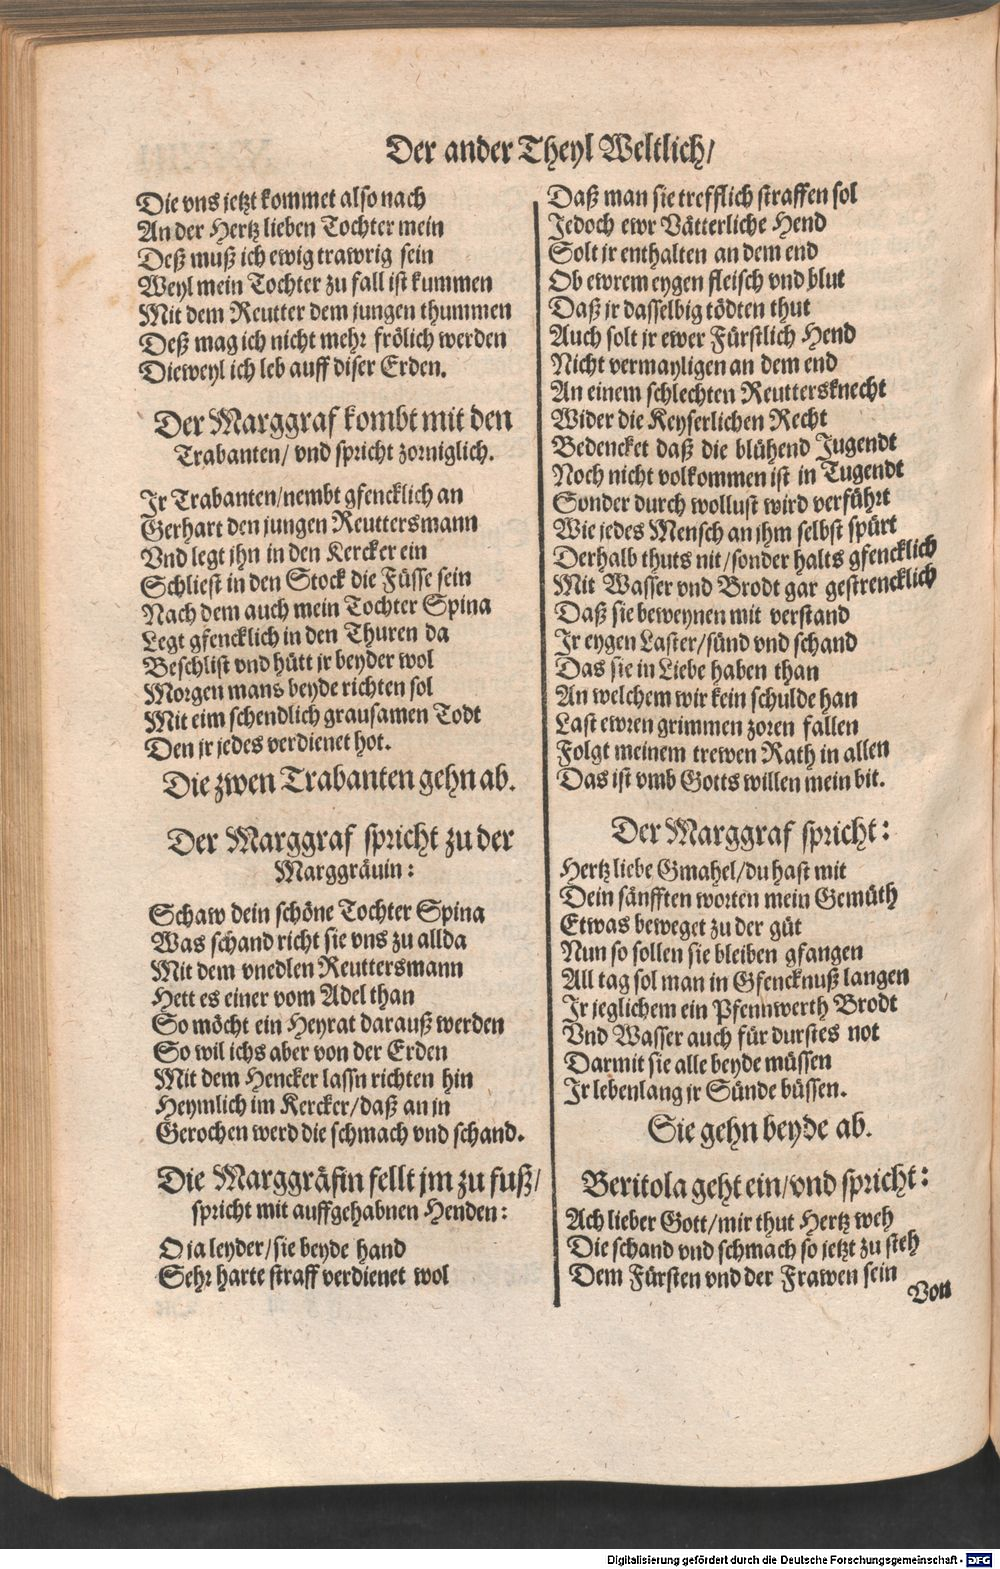 Der ander Theyl Weltlich/
Die vns jetzt kommet also nach
An der Hertz lieben Tochter mein
Deß muß ich ewig trawrig sein
Weyl mein Tochter zu fall ist kummen
Mit dem Reutter dem jungen thummen
Deß mag ich nicht mehr frölich werden
Dieweyl ich leb auff diser Erden.
Der Marggraf kombt mit den
Trabanten/ vnd spricht zorniglich.
Ir Trabanten/nembt gfencklich an
Gerhart den jungen Reuttersmann
Vnd legt jhn in den Kercker ein
Schliest in den Stock die Füsse sein
Nach dem auch mein Tochter Spina
Legt gfencklich in den Thuren da
Beschlist vnd hütt jr beyder wol
Morgen mans beyde richten sol
Mit eim schendlich grausamen Todt
Den jr jedes verdienet hot.
Die zwen Trabanten gehn ab.
Der Marggraf spricht zu der
Marggräuin:
Schaw dein schöne Tochter Spina
Was schand richt sie vns zu allda
Mit dem vnedlen Reuttersmann
Hett es einer vom Adel than
So möcht ein Heyrat darauß werden
So wil ichs aber von der Erden
Mit dem Hencker lassn richten hin
Heymlich im Kercker/daß an jn
Gerochen werd die schmach vnd schand.
Die Marggräfin fellt jm zu fuß/
spricht mit auffgehabnen Henden:
O ja leyder/sie beyde hand
Sehr harte straff verdienet wol
Daß man sie trefflich straffen sol
Jedoch ewr Vätterliche Hend
Solt jr enthalten an dem end
Ob ewrem eygen fleisch vnd blut
Daß jr dasselbig tödten thut
Auch solt jr ewer Fürstlich Hend
Nicht vermayligen an dem end
An einem schlechten Reuttersknecht
Wider die Keyserlichen Recht
Bedencket daß die blühend Jugendt
Noch nicht volkommen ist in Tugendt
Sonder durch wollust wird verführt
Wie jedes Mensch an jhm selbst spürt
Derhalb thuts nit/sonder halts gfencklich
Mit Wasser vnd Brodt gar gestrencklich
Daß sie beweynen mit verstand
Ir eygen Laster/sünd vnd schand
Das sie in Liebe haben than
An welchem wir kein schulde han
Last ewren grimmen zoren fallen
Folgt meinem trewen Rath in allen
Das ist vmb Gotts willen mein bit.
Der Marggraf spricht:
Hertz liebe Gmahel/du hast mit
Dein sänfften worten mein Gemüth
Etwas beweget zu der güt
Nun so sollen sie bleiben gfangen
All tag sol man in Gfencknuß langen
Ir jeglichem ein Pfennwerth Brodt
Vnd Wasser auch für durstes not
Darmit sie alle beyde müssen
Ir lebenlang jr Sünde büssen.
Sie gehn beyde ab.
Beritola geht ein/vnd spricht:
Ach lieber Gott/mir thut Hertz weh
Die schand vnd schmach so jetzt zu steh
Dem Fürsten vnd der Frawen sein
Von
Digitalisierung gefördert durch die Deutsche Forschungsgemeinschaft - DFG